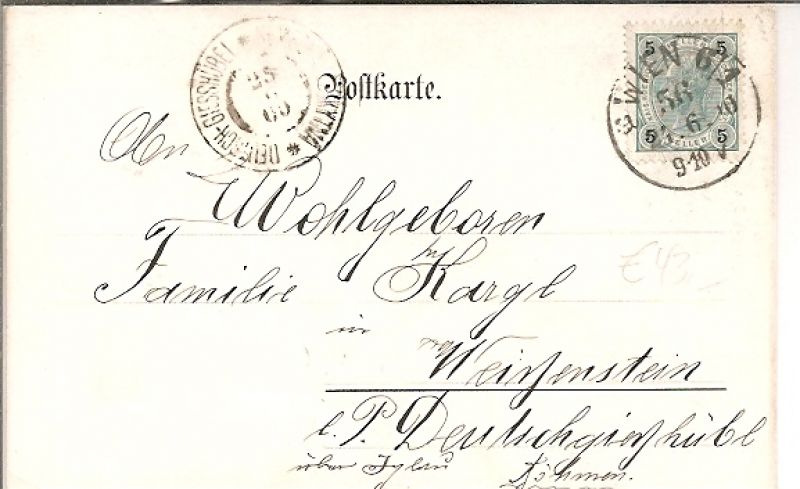 Postkarte.
DEUTSCH-GIESSHÜBEL
WIEN 6/1
5 5
5 5
HELLER
9-10 V
An
Wohlgeboren
Familie Kargl
in
Weißenstein
l. P. Deutschgießhübl
über Iglau Böhmen.
€ 43,-